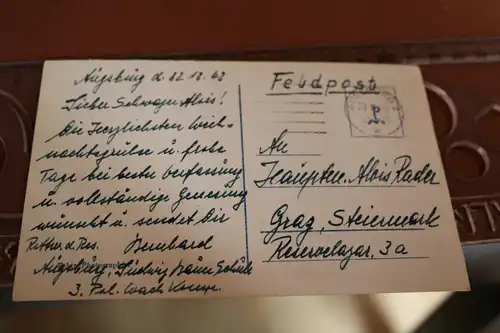 Augsburg d. 22.12.42
Lieber Schwager Alois!
Die Herzlichsten Weih-
nachtsgrüße u. frohe
Tage bei bester Verfassung
u. vollständige Genesung
wünscht u. sendet Dir
Rottm. d. Res. Bernhard
Augsburg, Ludwig Schule
3. Pol. Wach Komp.
Feldpost
An
Hauptm. Alois Rader
Graz, Steiermark
Reservelazar. 3a